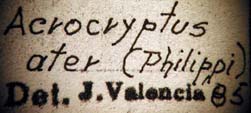 Acrocryptus
ater (Philippi)
Det. J. Valencia 85